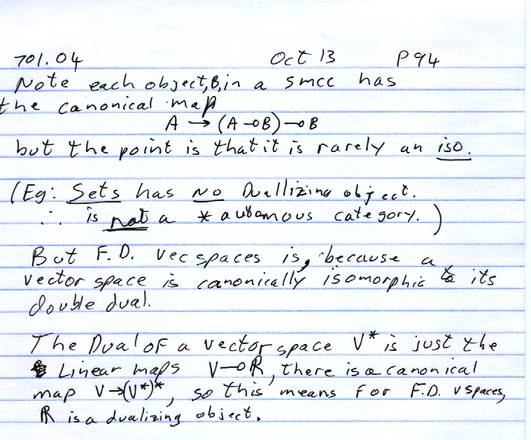 701.04 Oct 13 P94
Note each object, B, in a smcc has
the canonical map
A → (A ⊸ B) ⊸ B
but the point is that it is rarely an iso.
(Eg: Sets has no Duallizing object.
∴ is not a * autonomous category.)
But F.D. vec spaces is, because a
vector space is canonically isomorphic to its
double dual.
The Dual of a vector space V* is just the
Linear maps V ⊸ R, there is a canonical
map V → (V*)*, so this means for F.D. vspaces,
R is a dualizing object.